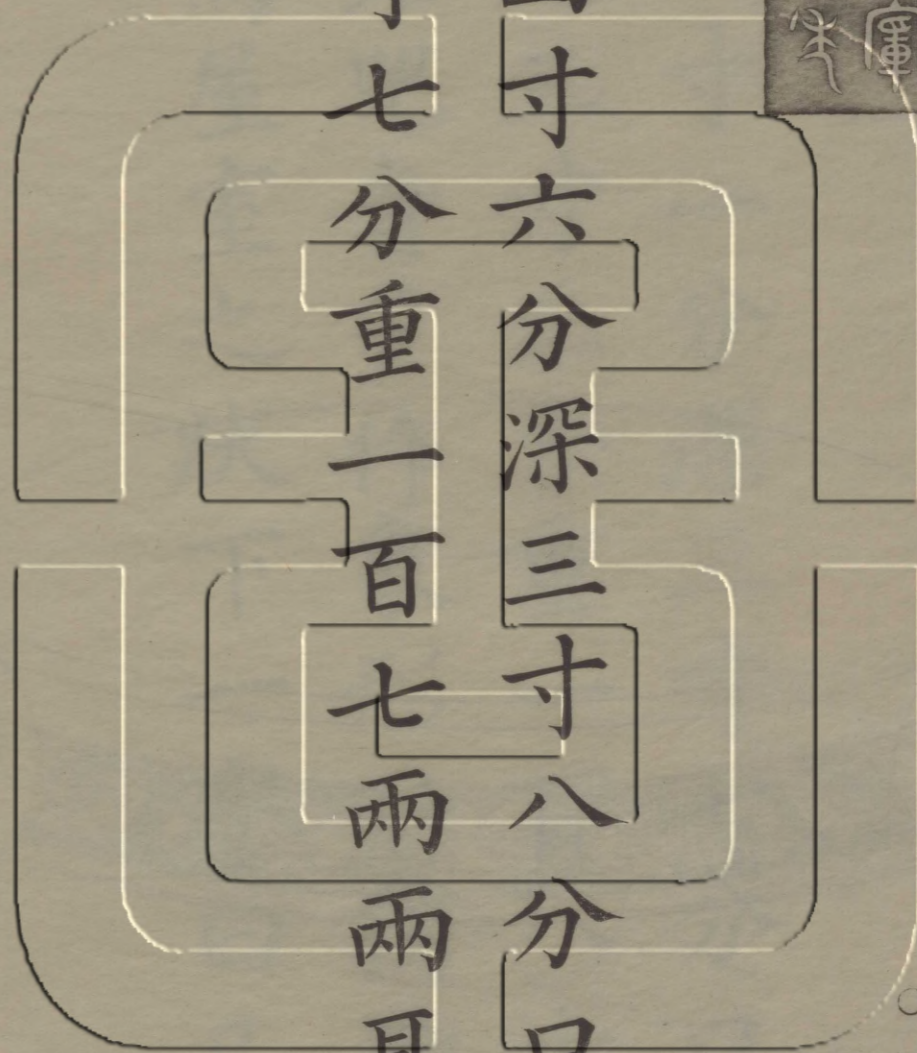 寸六分深三寸八分口
七分重一百七兩兩耳